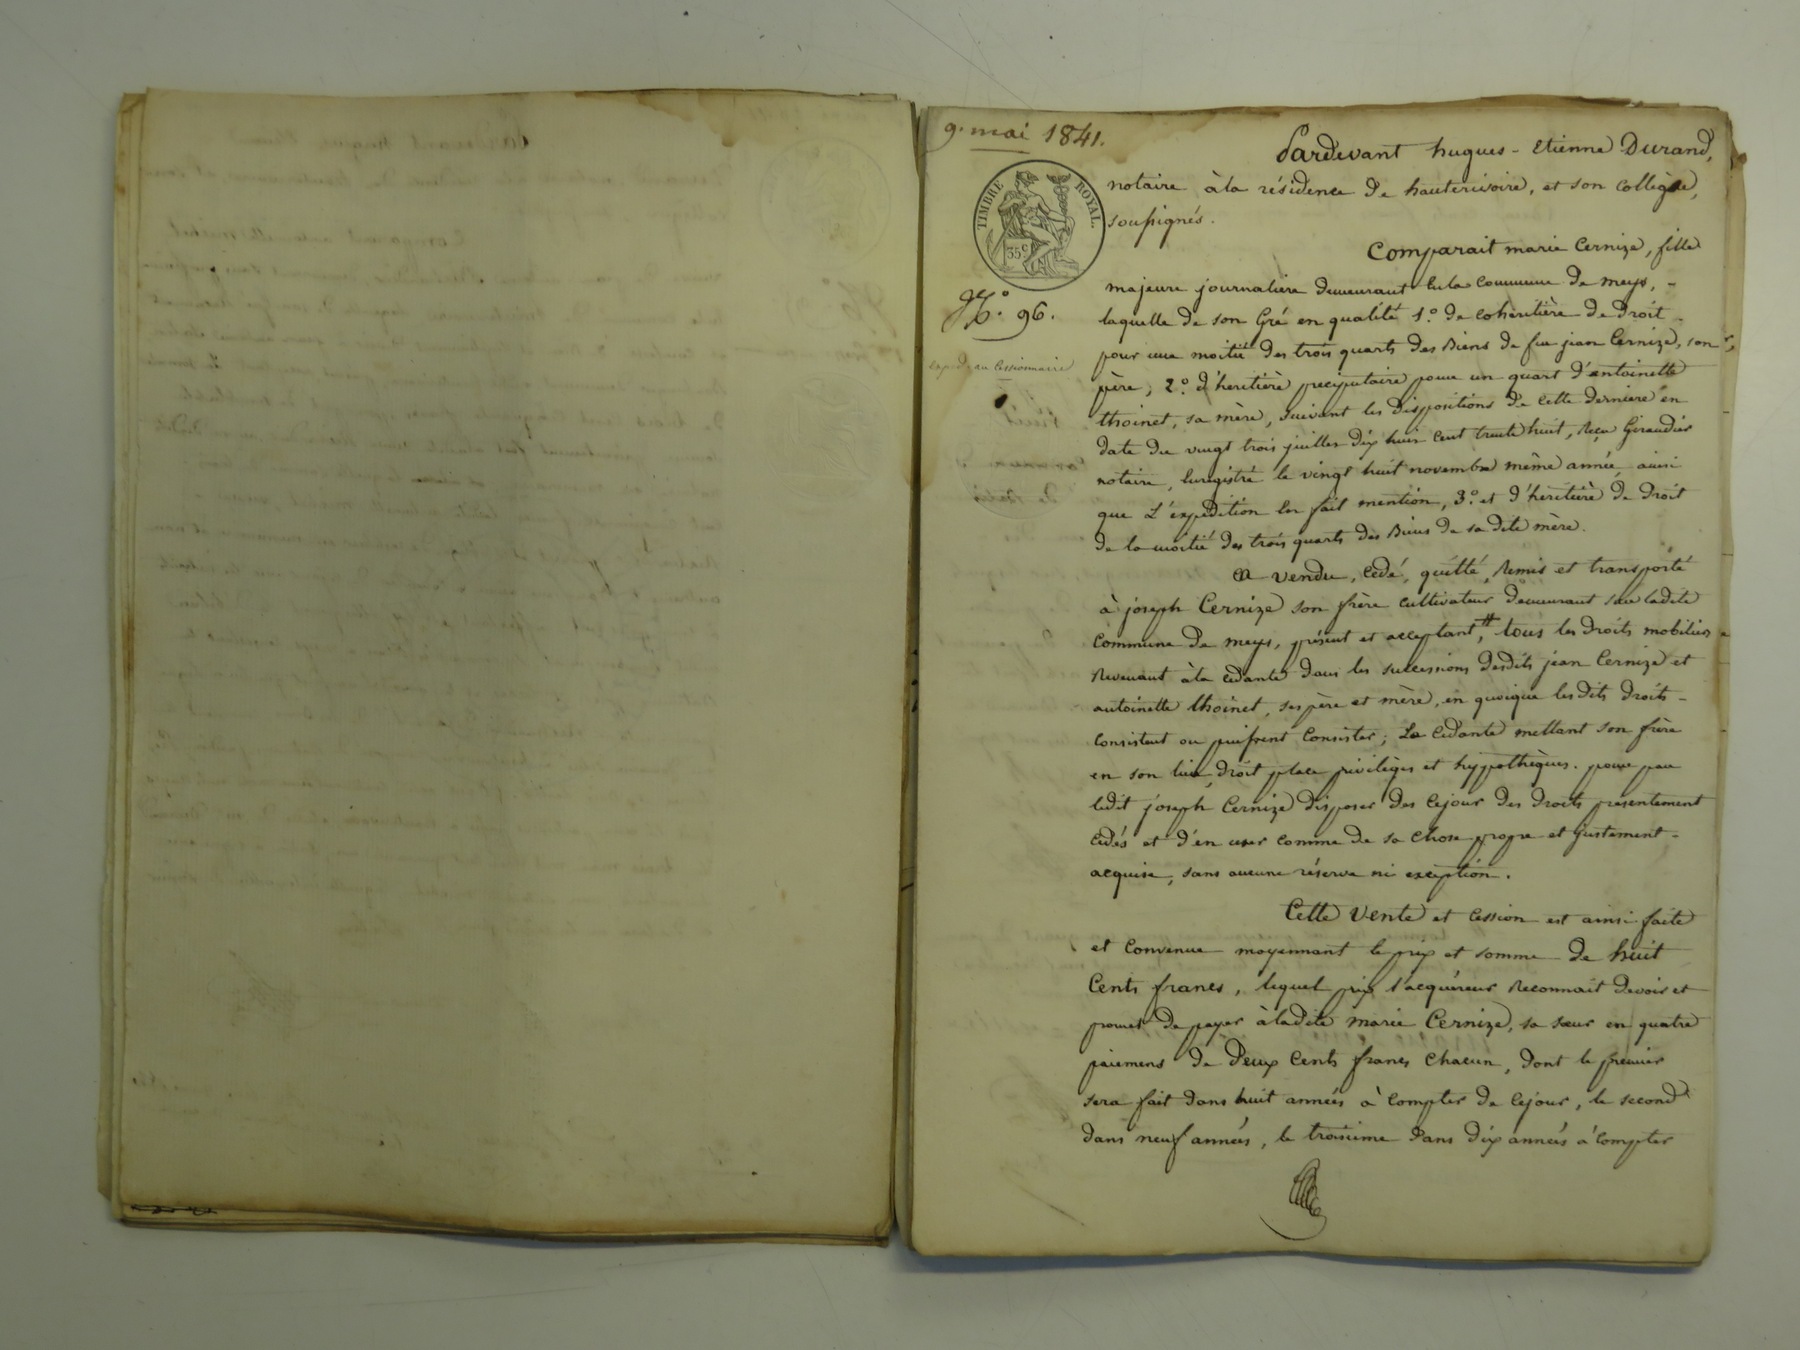 9. mai 1841.
TIMBRE ROYAL.
35 c
N.° 96.
exped. au Cessionnaire
Pardevant hugues - Etienne Durand,
notaire à la résidence de hauterivoire, et son collègue,
soussignés.
Comparait marie Cernize, fille
majeure journalière demeurant en la Commune de meys, -
laquelle de son Gré en qualité 1.° de cohéritière de Droit -
pour une moitié des trois quarts des Biens de feu jean Cernize, son
père, 2.° d'heritière preciputaire pour un quart d'antoinette
thoinet, sa mère, suivant les dispositions de cette dernière en
date du vingt trois juillet dix huit cent trente huit, Reçu Giraudier
notaire, Enregistré le vingt huit novembre même année, ainsi
que L'expédition en fait mention, 3.° et d'héritière de Droit
de la moitié des trois quarts des Biens de sa dite mère.
a vendu, Cédé, quitté, Remis et transporté
à joseph Cernize son frère cultivateur demeurant sur ladite
Commune de meys, présent et acceptant, # tous les droits mobiliers
Revenant à la cédante dans les successions desdits jean Cernize et
antoinette thoinet, ses père et mère, en quoique lesdits droits -
Consistent ou puissent Consister; La Cédante mettant son frère
en son lieu, droit place privilèges et hypothèques. pour par
ledit joseph Cernize disposer des Cejour des droits presentement
cédés et d'en user comme de sa chose propre et justement -
acquise, sans aucune réserve ni exception.
Cette Vente et Cession est ainsi faite
et Convenue moyennant le prix et somme de huit
Cents francs, lequel prix l'acquéreur Reconnait devoir et
promet de payer à ladite marie Cernize, sa sœur en quatre
paiemens de Deux Cents francs Chacun, dont le premier
sera fait dans huit années à Compter de Cejour, le second
dans neuf années, le troisième dans dix années à Compter